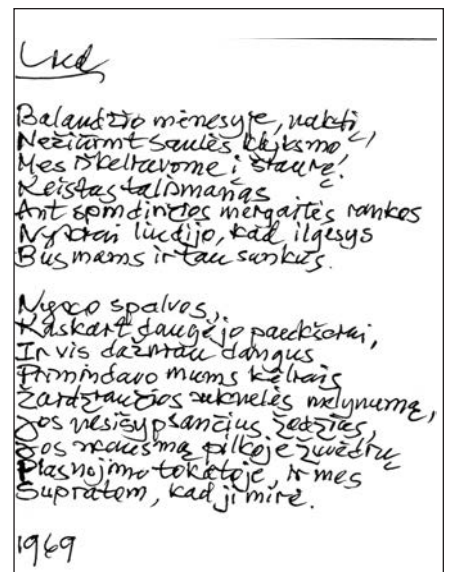 Balandžio mėnesyje, naktį,
Nežiūrint saulės klyksmo,
Mes iškeliavome į šiaurę.
Keistas talismanas
Ant spindinčios mergaitės rankos
liudijo, kad ilgesys
Bus mums ir tau sunkus.
spalvos,
Kaskart daugėjo paukščiai,
Ir vis dažniau dangus
Primindavo mums kelrais
suknelės mėlynumą,
Jos nesišypsančius žodžius,
Jos skausmą pilkoje žuvėdrų
Plasnojimo tokatoje, ir mes
Supratom, kad ji mirė.
1969